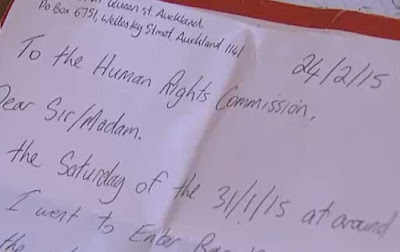 Queen st Auckland.
Po Box 6751, Wellesley Street Auckland 1141
24/2/15
To the Human Rights Commission,
Dear Sir/Madam.
the Saturday of the 31/1/15 at around
I went to Enter
the